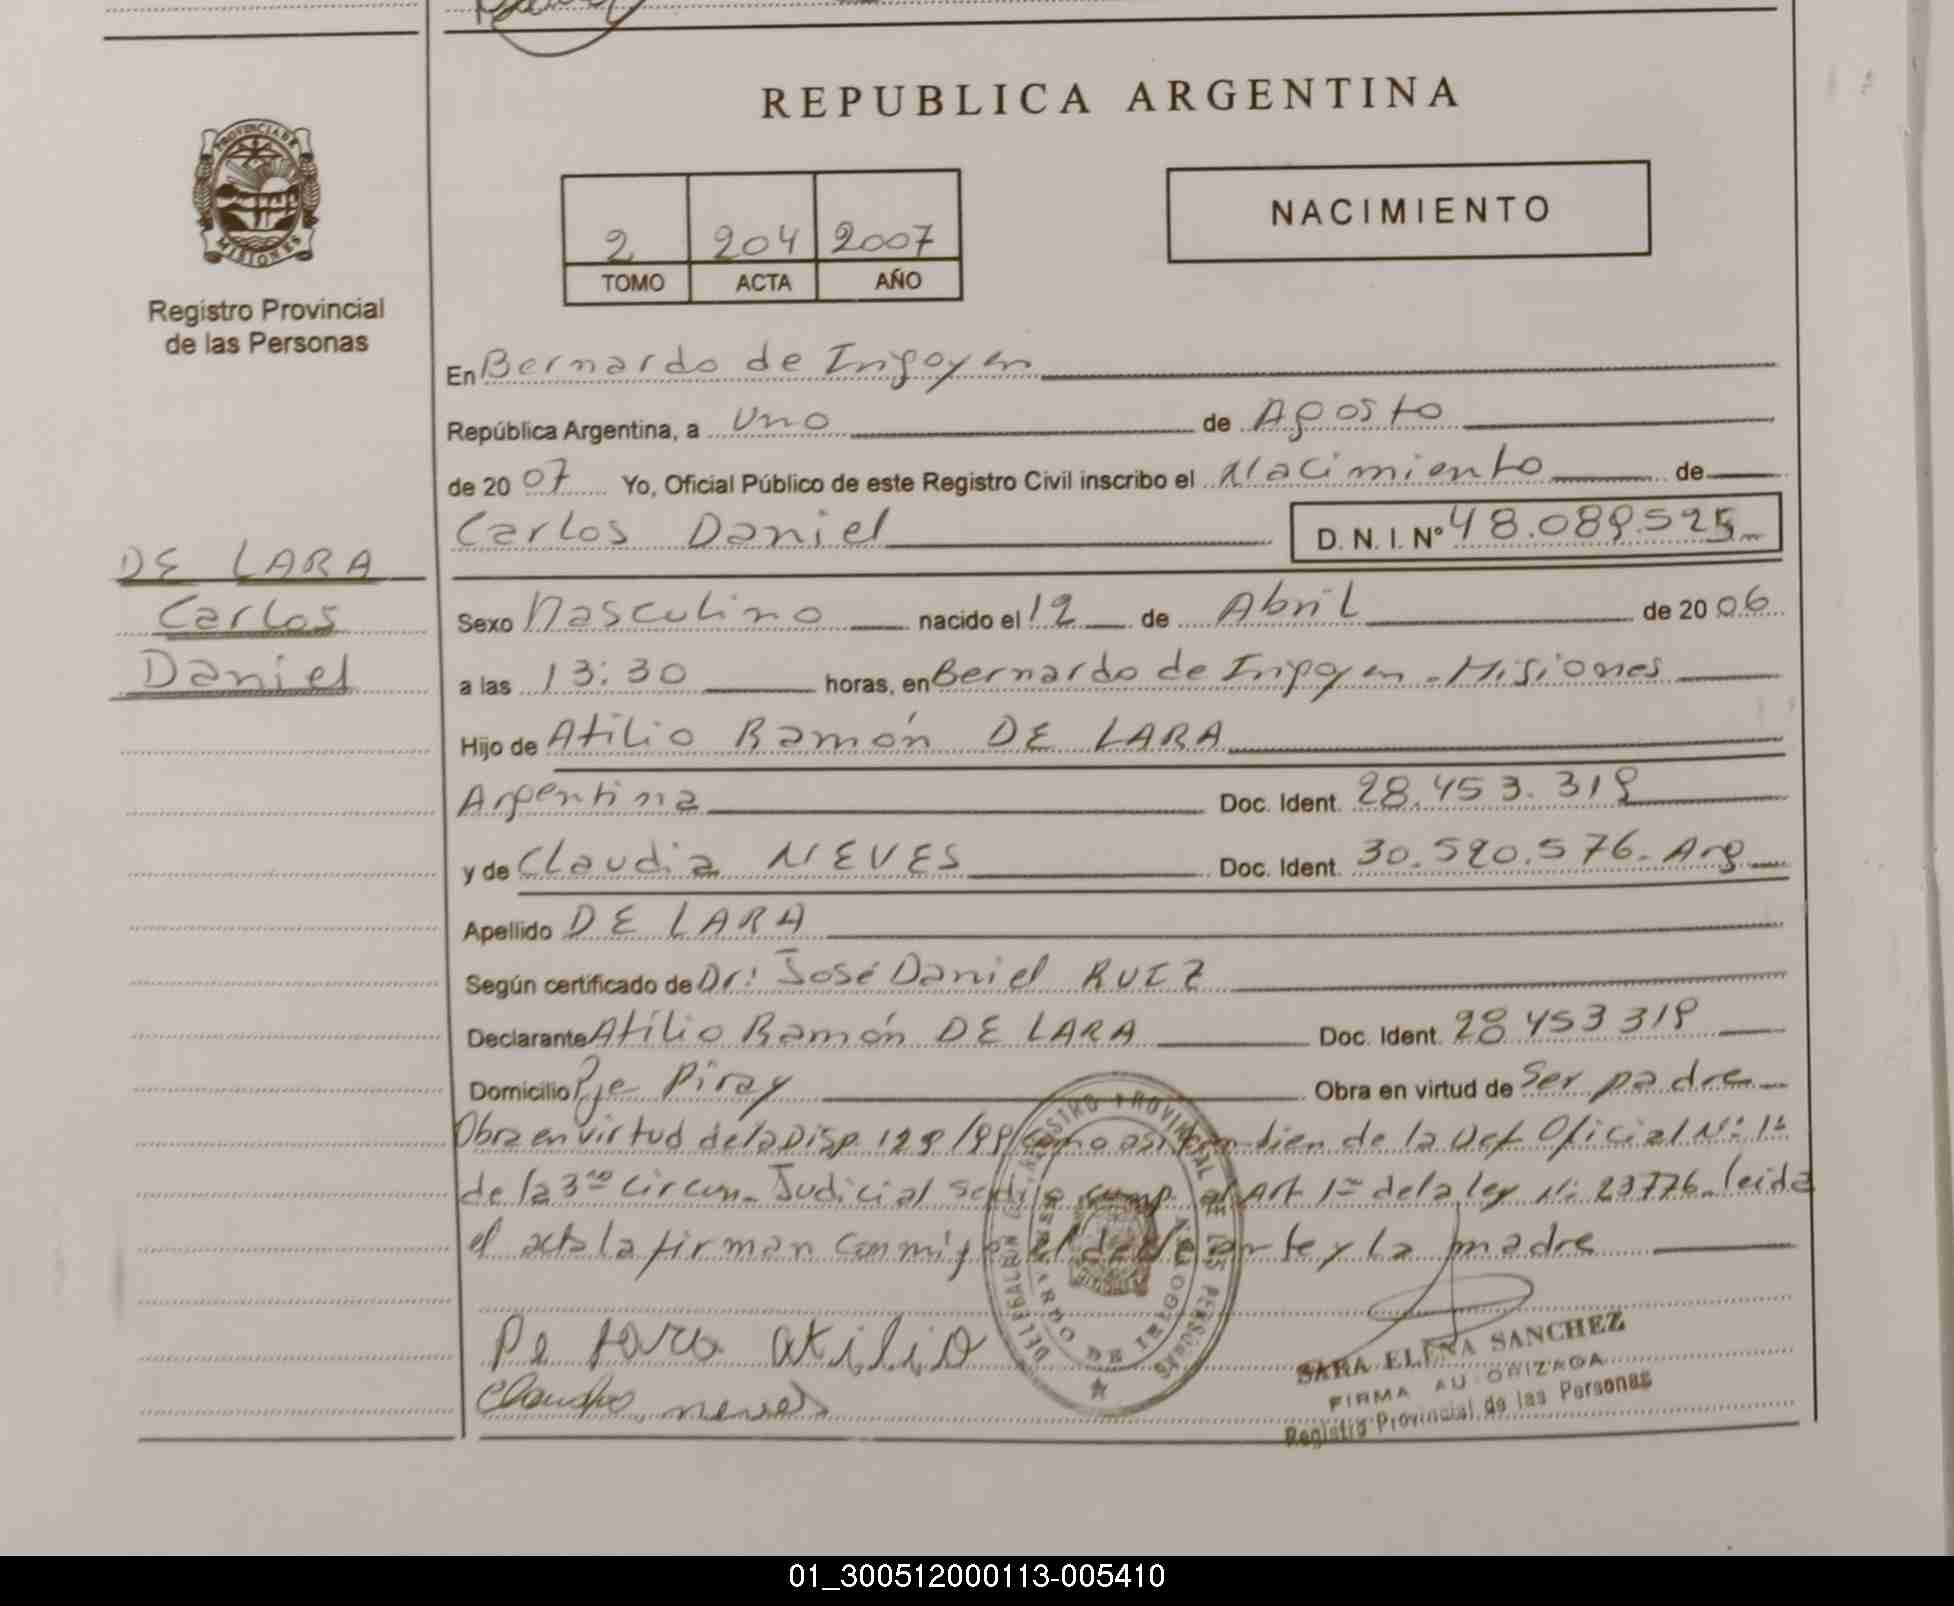 REPUBLICA ARGENTINA
PROVINCIA DE
MISIONES
Registro Provincial
de las Personas
2 204 2007
TOMO ACTA AÑO
NACIMIENTO
En Bernardo de Irigoyen
República Argentina, a Uno de Agosto
de 2007 Yo, Oficial Público de este Registro Civil inscribo el Nacimiento de
Carlos Daniel D. N. I. Nº 48.089.525
DE LARA
Carlos
Daniel
Sexo Masculino nacido el 12 de Abril de 2006
a las 13:30 horas, en Bernardo de Irigoyen - Misiones
Hijo de Atilio Ramón DE LARA
Argentina Doc. Ident. 28.453.319
y de Claudia NEVES Doc. Ident. 30.520.576. Arg
Apellido DE LARA
Según certificado de Dr: José Daniel RUIZ
Declarante Atilio Ramón DE LARA Doc. Ident. 28 453 319
Domicilio Pje Piray Obra en virtud de Ser padre
Obra en virtud de la Disp. 129/99 como asi tambien de la Def Oficial Nº 1ª
de la 3ra Circun. Judicial se dijo cump. al Art 1ro de la ley Nº 23776. leida
el acta la firman conmigo el declarante y la madre
De Lara Atilio
Claudia neves
DELEGACION REGISTRO PROVINCIAL DE LAS PERSONAS
SARA ELENA SANCHEZ
FIRMA AUTORIZADA
Registro Provincial de las Personas
01_300512000113-005410